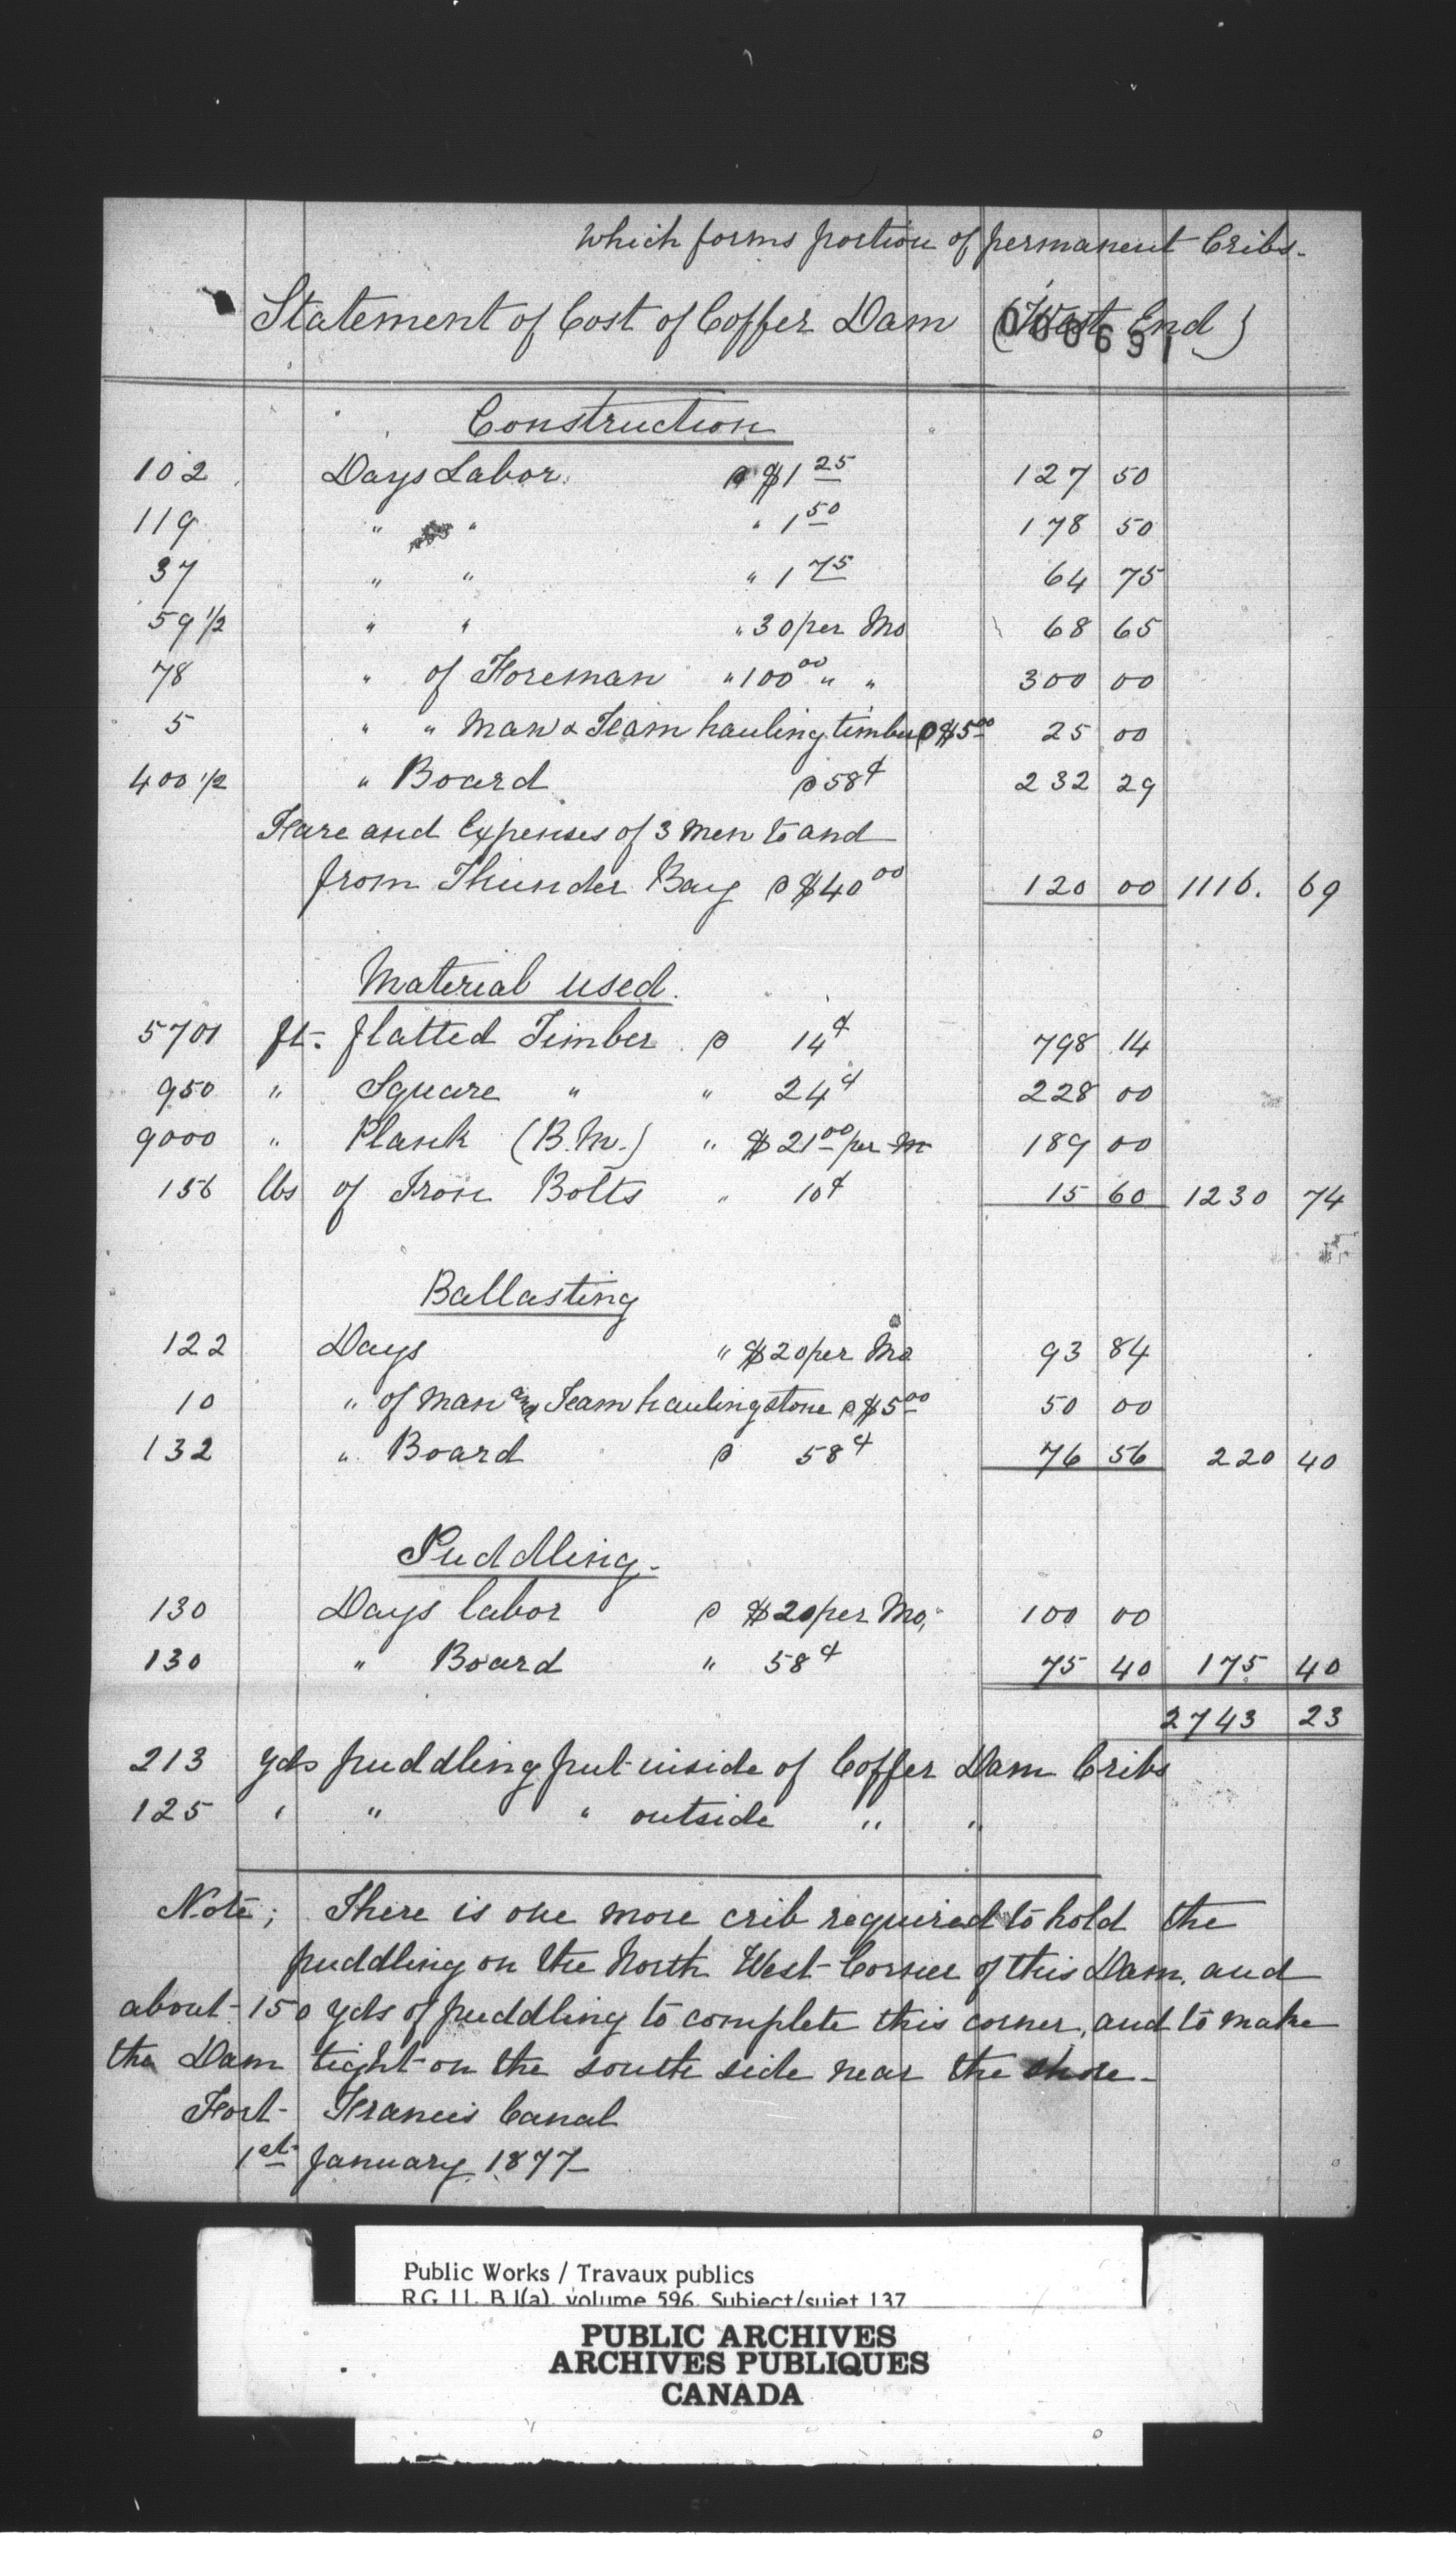 which forms portion of permanent Cribs.
Statement of Cost of Coffer Dam (West End)
000691
Construction
102 Days Labor @ $1 25 127 50
119 " " " 1 50 178 50
37 " " " 1 75 64 75
59 1/2 " " " 30 per Mo 68 65
78 " of Foreman " 100 00 " " 300 00
5 " " Man & Team hauling timber @ $5 00 25 00
400 1/2 " Board @ 58¢ 232 29
Fare and Expenses of 3 men to and
from Thunder Bay @ $40 00 120 00 1116. 69
Material used.
5701 ft. flatted Timber @ 14¢ 798 14
950 " Square " " 24¢ 228 00
9000 " Plank (B.M.) " $21 00 per M 189 00
156 lbs of Iron Bolts " 10¢ 15 60 1230 74
Ballasting
122 Days " $20 per Mo 93 84
10 " of man and Team hauling stone @ $5 00 50 00
132 " Board @ 58¢ 76 56 220 40
Puddling.
130 Days labor @ $20 per Mo. 100 00
130 " Board " 58¢ 75 40 175 40
2743 23
213 yds puddling put inside of Coffer Dam Cribs
125 " " " outside " "
Note; There is one more crib required to hold the
puddling on the North West Corner of this Dam, and
about 150 yds of puddling to complete this corner, and to make
the Dam tight on the south side near the shore.
Fort Francis Canal
1st January 1877
Public Works / Travaux publics
RG 11, B 1(a), volume 596, Subject/sujet 137
PUBLIC ARCHIVES
ARCHIVES PUBLIQUES
CANADA